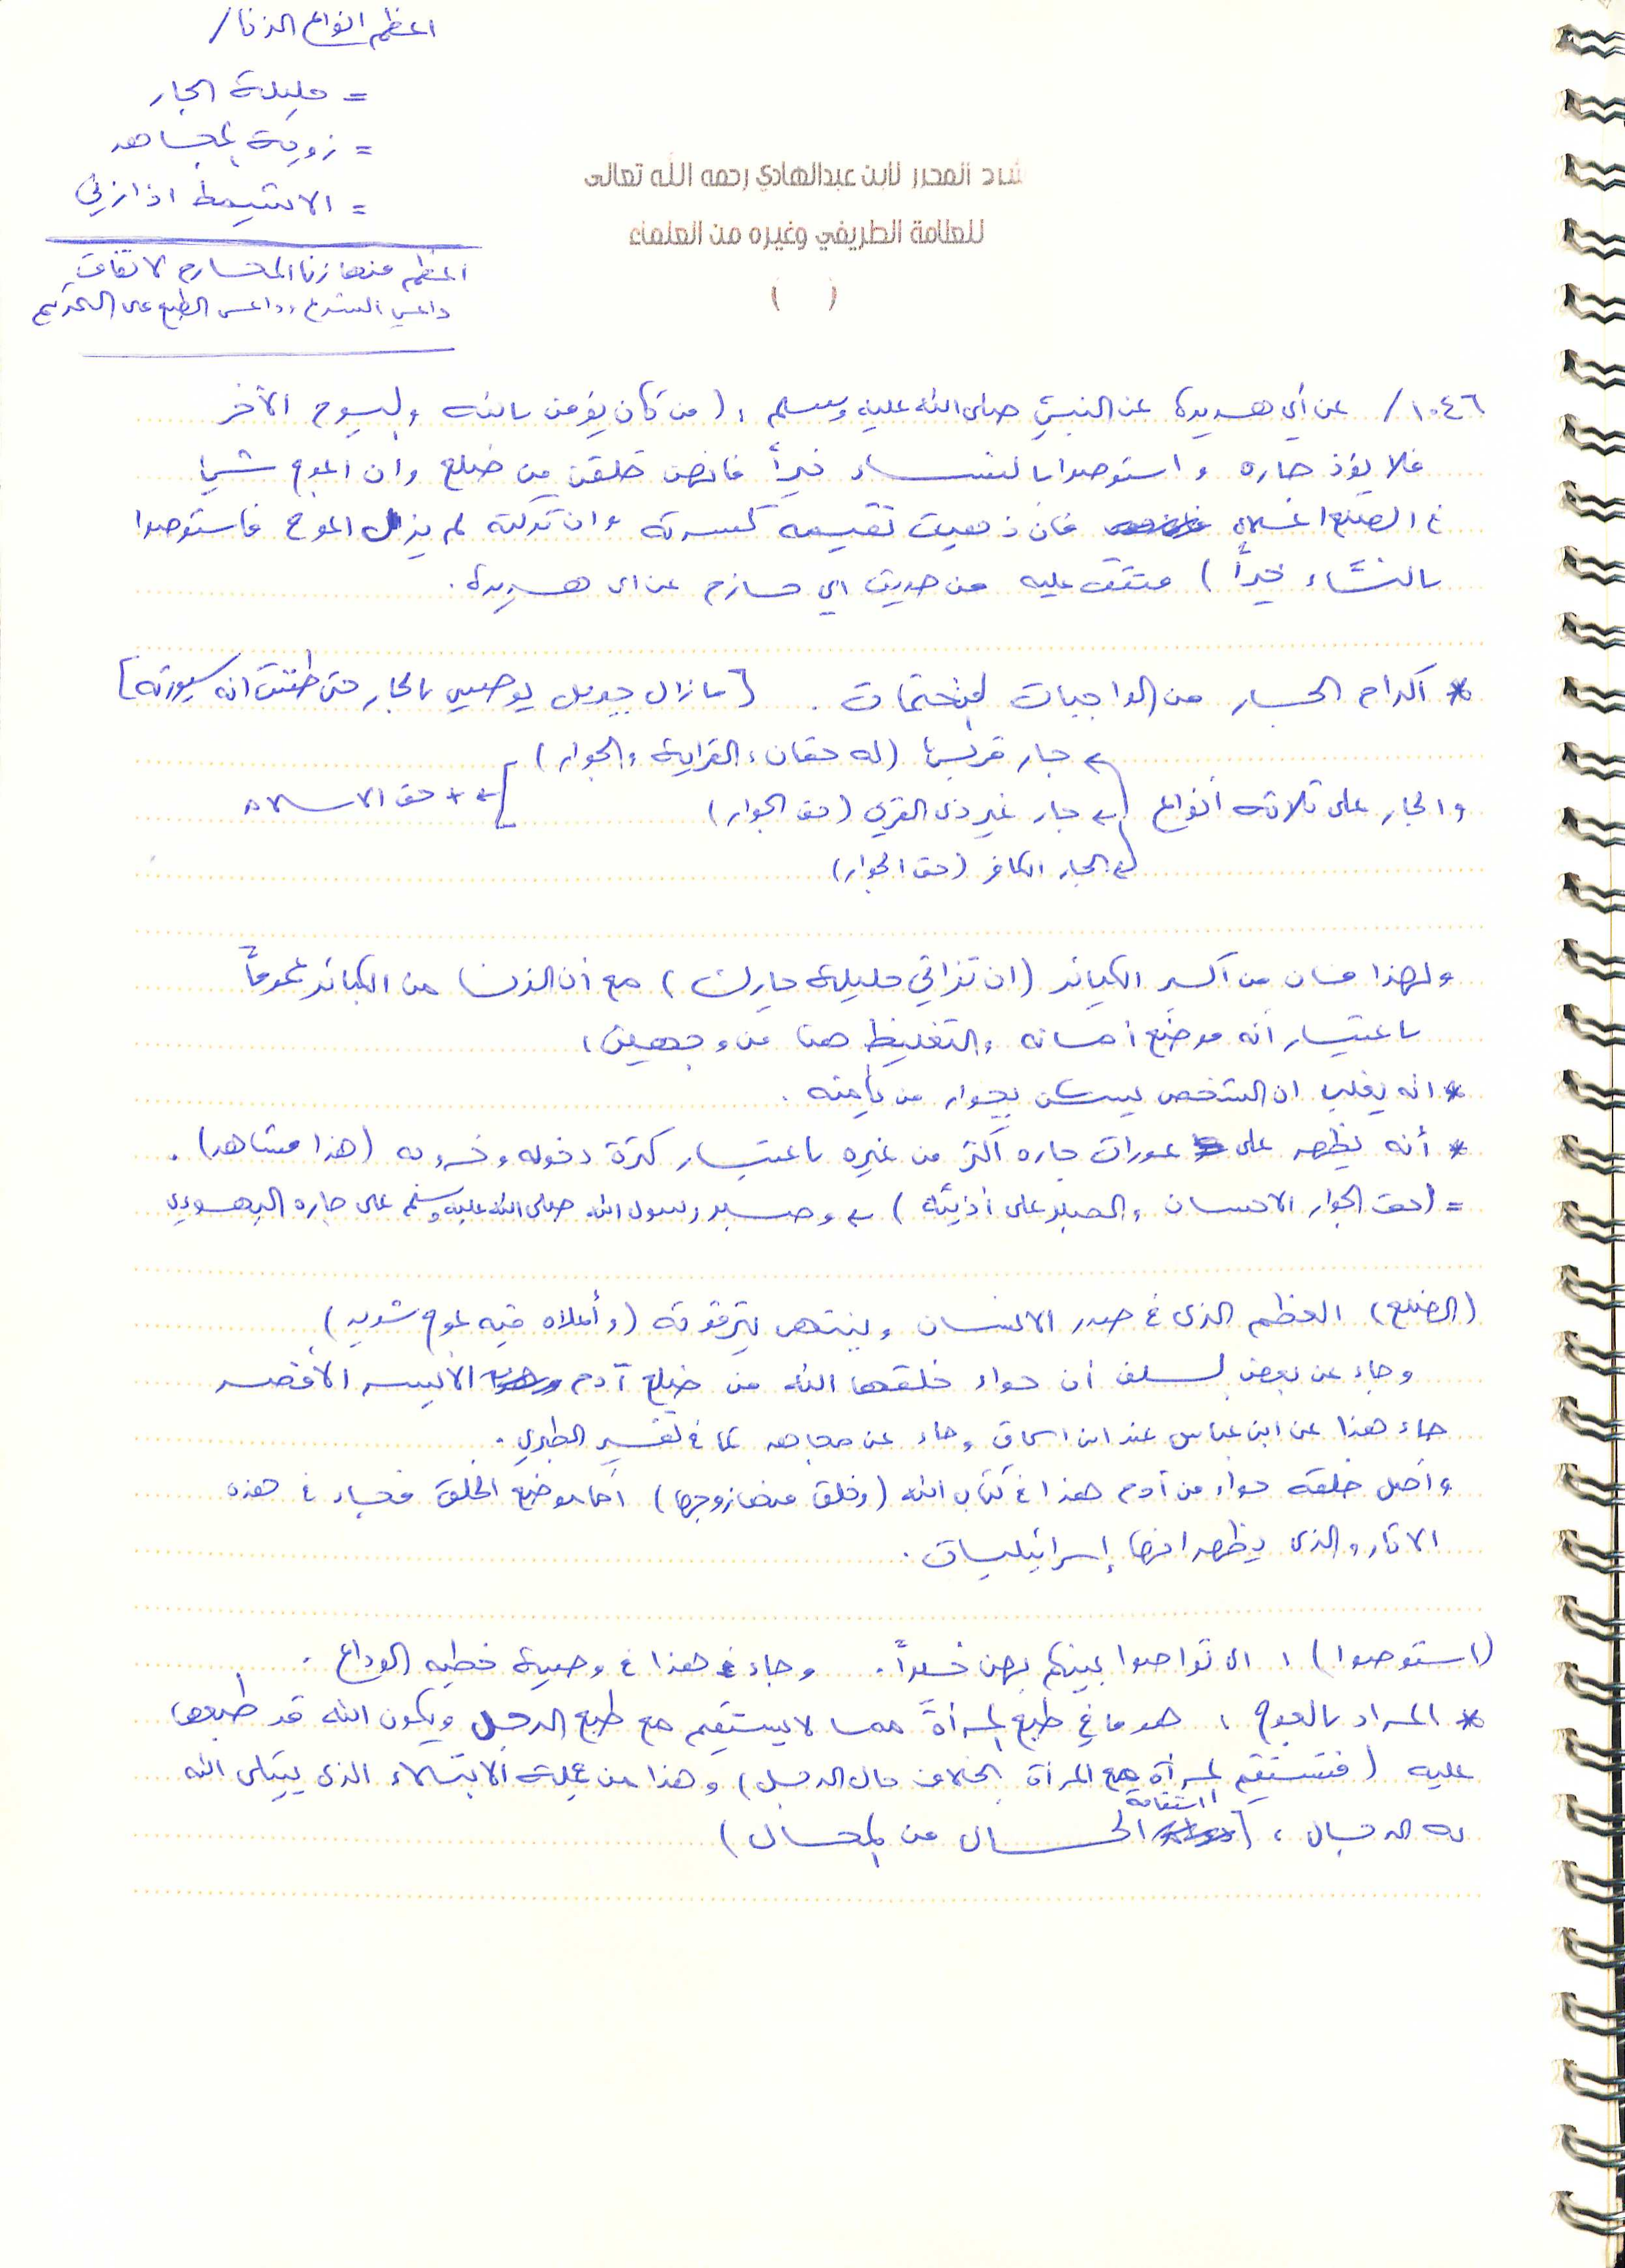 اعظم انواع الزنا /
= حليلة الجار
= زوجة المجاهد
= الاشيمط اذا زنى
اعظم منها زنا المحارم لاتفاق
داعي الشرع، وداعي الطبع على التحريم
شرح المحرر لابن عبدالهادي رحمه الله تعالى
للعلامة الطريفي وغيره من العلماء
( )
١٠٤٦ / عن أبي هريرة عن النبي صلى الله عليه وسلم : (من كان يؤمن بالله واليوم الآخر
فلا يؤذ جاره واستوصوا بالنساء خيراً فانهن خلقن من ضلع وان اعوج شيئا
في الضلع اعلاه فان ذهبت تقيمه كسرته وان تركته لم يزل اعوج فاستوصوا
بالنساء خيراً) متفق عليه من حديث ابي حازم عن ابي هريرة .
* اكرام الجار من الواجبات المتحتمات . [مازال جبريل يوصيني بالجار حتى ظننت انه سيورثه]
← جار قريب (له حقان، القرابة والجوار)
والجار على ثلاثة أنواع ← جار غير ذي القربى (حق الجوار) ← + حق الاسلام
← الجار الكافر (حق الجوار)
ولهذا فان من اكبر الكبائر (ان تزاني حليلة جارك) مع أن الزنا من الكبائر عموماً
باعتبار أنه موضع أمانه والتغليظ هنا من وجهين :
* انه يغلب ان الشخص يسكن بجوار من يأمنه .
* أنه يظهر على عورات جاره أكثر من غيره باعتبار كثرة دخوله وخروجه (هذا مشاهد) .
= (حق الجوار الاحسان والصبر على أذيته) ← وصبر رسول الله صلى الله عليه وسلم على جاره اليهودي
(الضلع) العظم الذي في صدر الانسان وينتهي بترقوته (وأعلاه فيه عوج شديد)
وجاء عن بعض السلف أن حواء خلقها الله من ضلع آدم الأيسر الأقصر
جاء هذا عن ابن عباس عند ابن اسحاق وجاء عن مجاهد كما في تفسير الطبري .
وأصل خلقة حواء من آدم هذا في كتاب الله (وخلق منها زوجها) أما موضع الخلق فجاء في هذه
الاثار والذي يظهر انها إسرائيليات .
(استوصوا) : اي تواصوا بينكم بهن خيراً . وجاء هذا في وصية خطبه الوداع .
* المراد بالعوج : هو ما في طبع المرأة مما لا يستقيم مع طبع الرجل ويكون الله قد طبعها
عليه (فتستقيم المرأة مع المرأة بخلاف حال الرجل) وهذا من جملة الابتلاء الذي يبتلي الله
به الرجال ، [استقامة الحال من المحال)